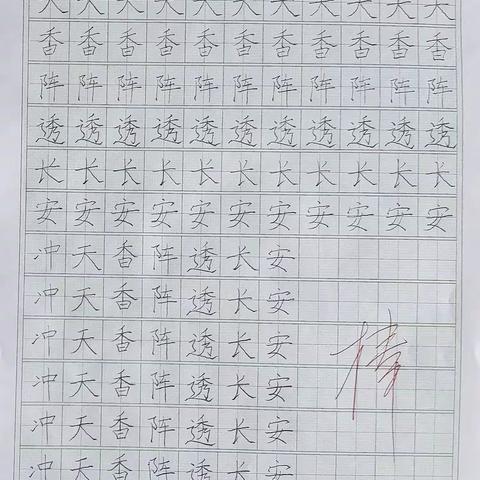 天天天天天天天天天天天
香香香香香香香香香香香
阵阵阵阵阵阵阵阵阵阵阵
透透透透透透透透透透透
长长长长长长长长长长长
安安安安安安安安安安安
冲天香阵透长安
冲天香阵透长安
冲天香阵透长安
冲天香阵透长安
冲天香阵透长安
冲天香阵透长安
棒